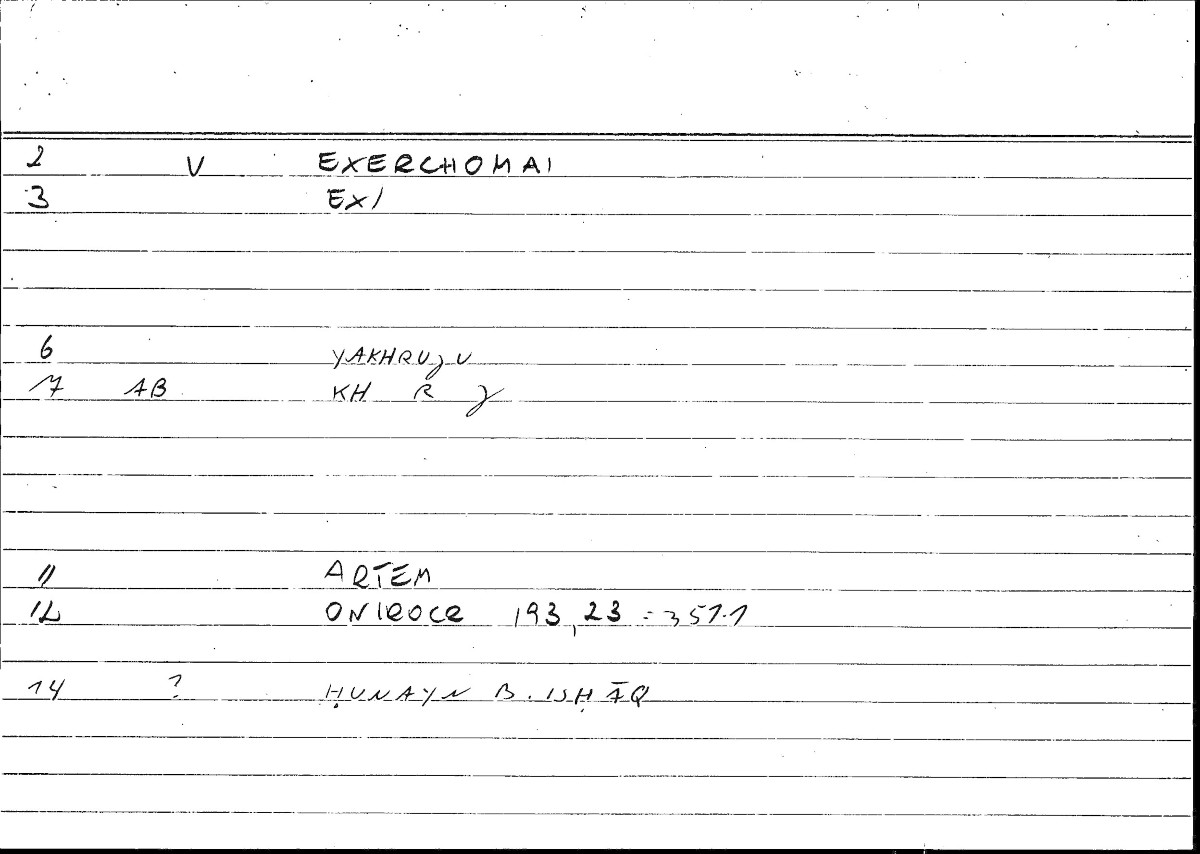 2 V EXERCHOMAI
3 EX/
6 YAKHRUJU
7 AB KH R J
11 ARTEM
12 ONIROCR 193,23 = 351.1
14 ? ḤUNAYN B. ISḤĀQ